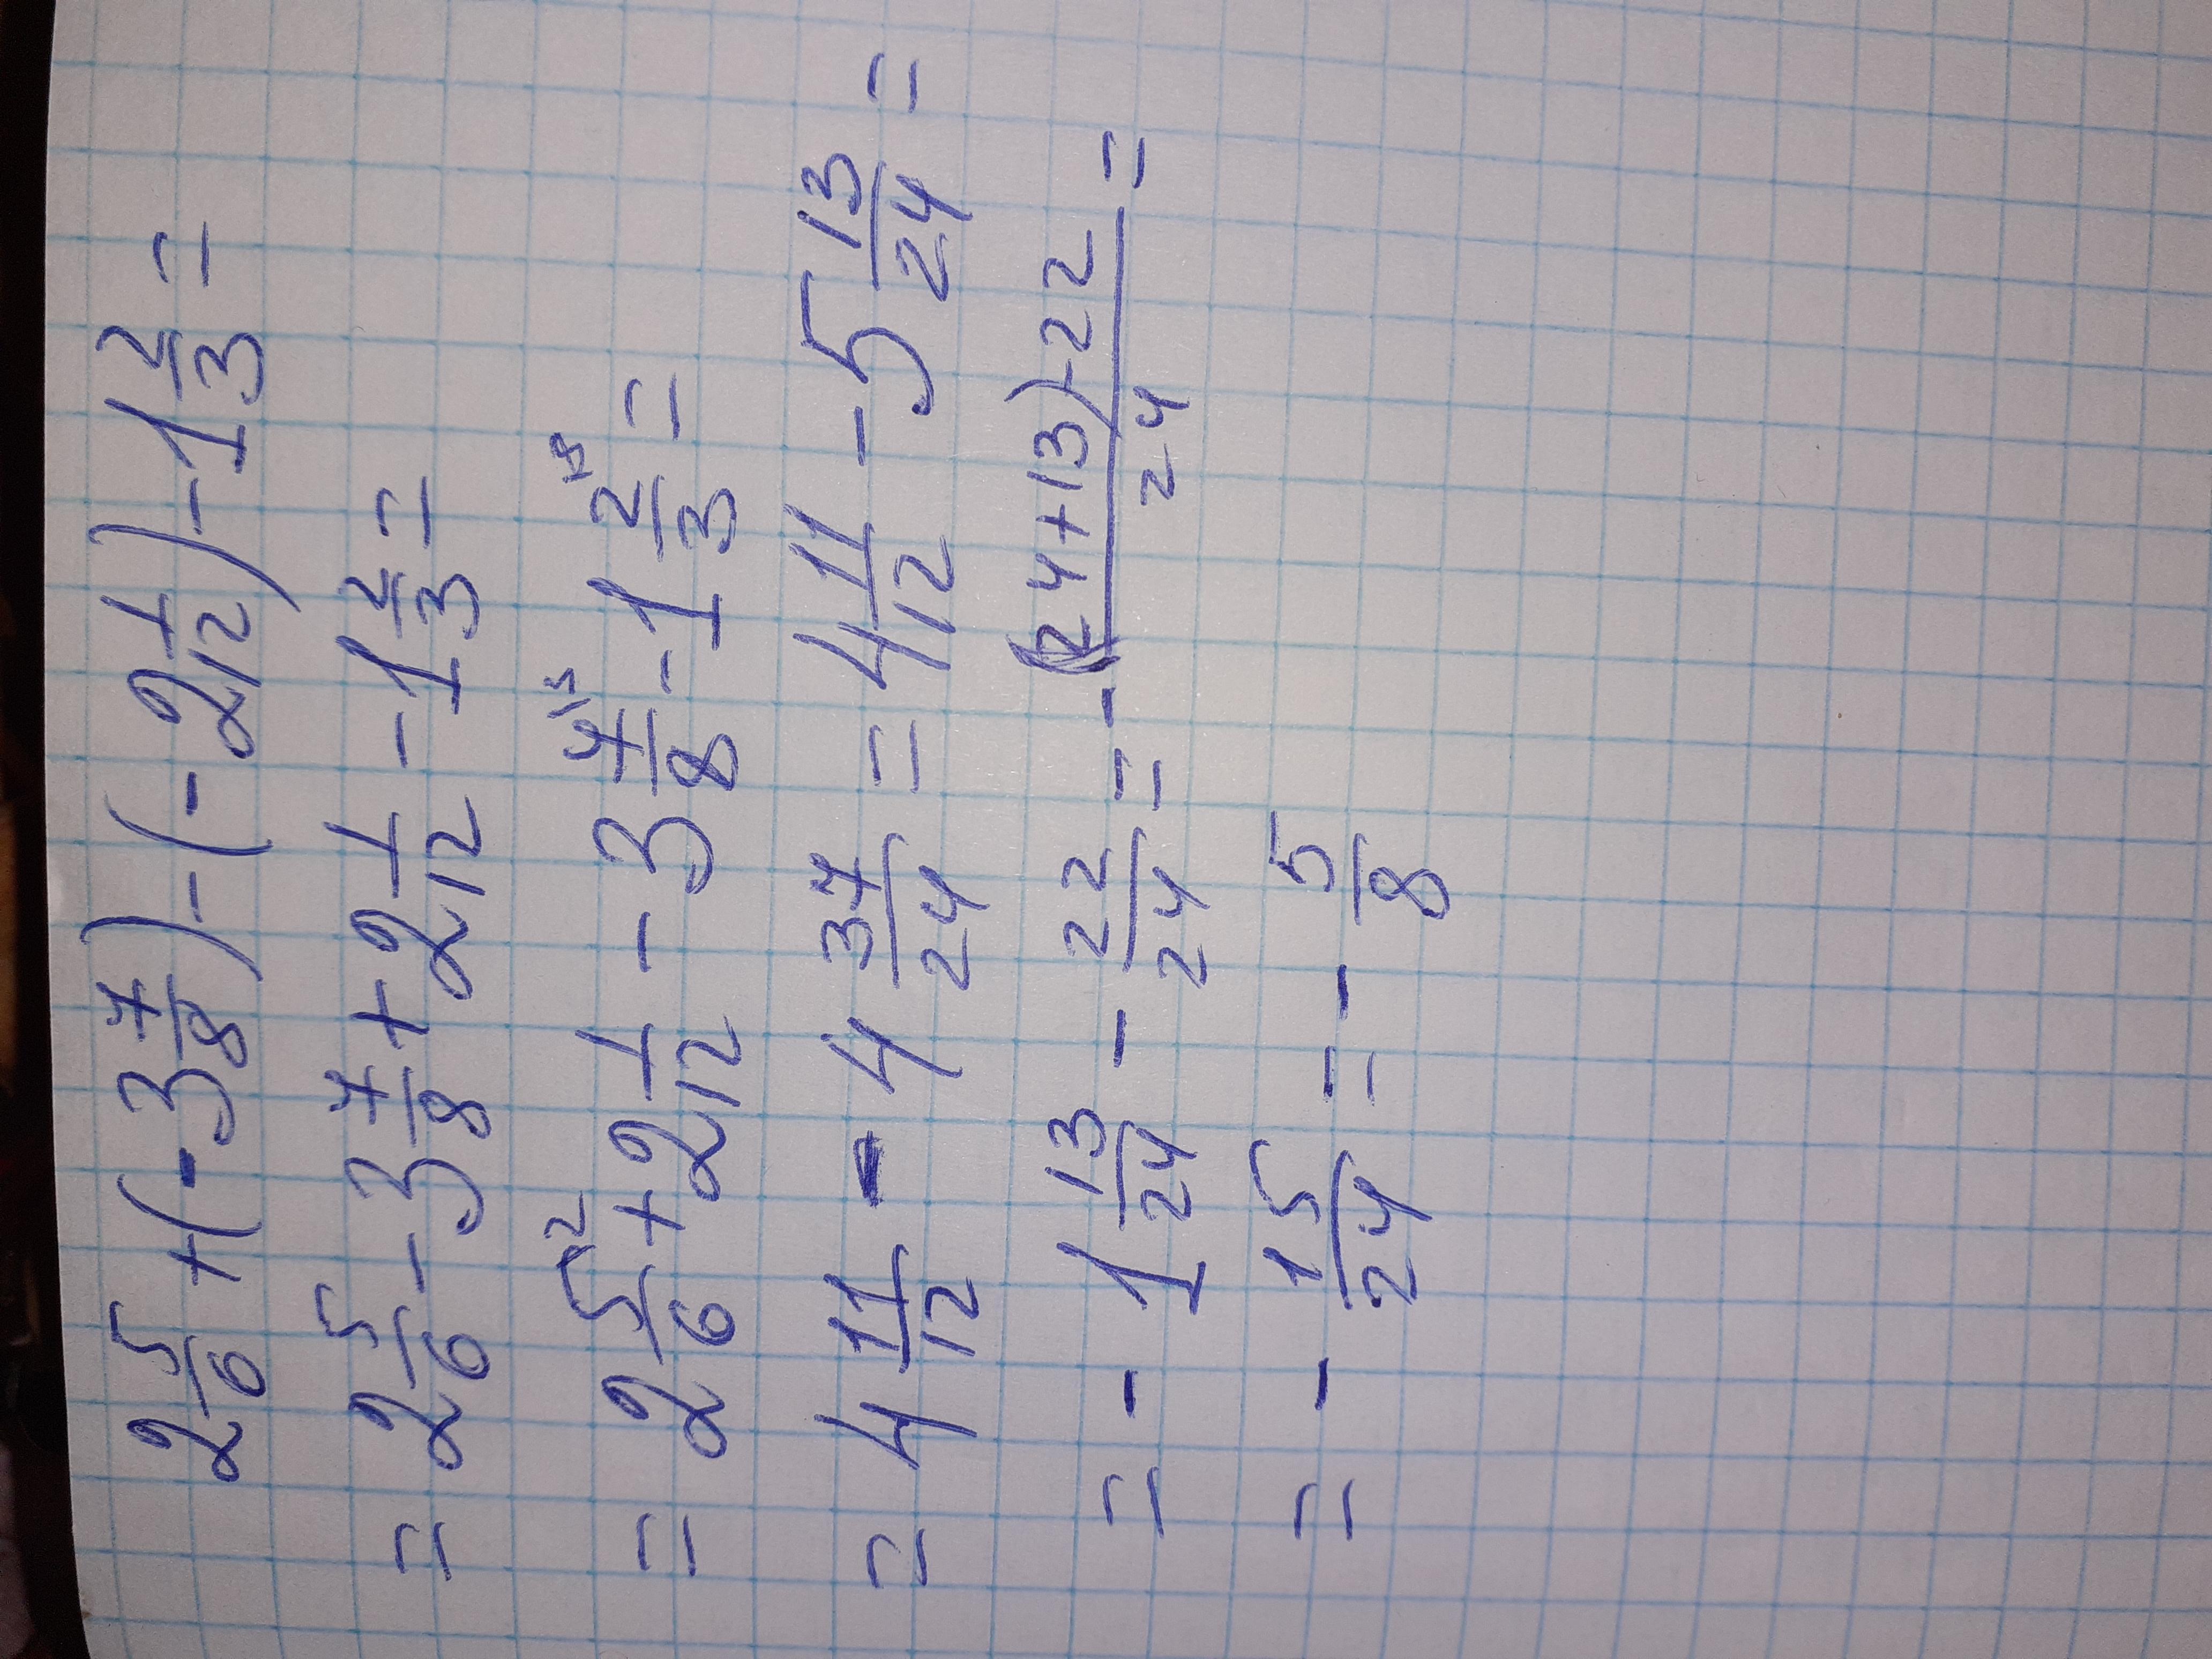 2 5/6 + (-3 7/8) - (-2 1/12) - 1 2/3 =
= 2 5/6 - 3 7/8 + 2 1/12 - 1 2/3 =
= 2 5/6 \2 + 2 1/12 - 3 7/8 \3 - 1 2/3 \8 =
= 4 11/12 - 4 37/24 = 4 11/12 - 5 13/24 =
= - 1 13/24 - 22/24 = - (24+13)-22/24 =
= - 15/24 = - 5/8